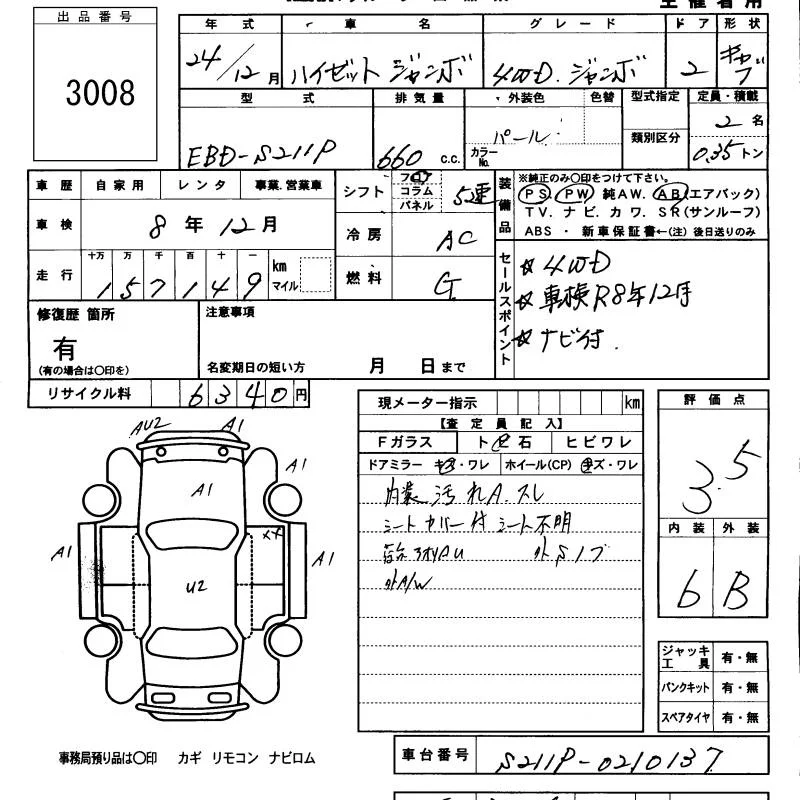 主催者用
出品番号
3008
年式 車名 グレード ドア 形状
24/12月 ハイゼット ジャンボ 4WD.ジャンボ 2 キャブ
型式 排気量 外装色 色替 型式指定 定員・積載
類別区分
EBD-S211P 660 C.C. カラーNo. パール 2名
0.35トン
車歴 自家用 レンタ 事業.営業車
車検 8年12月
走行 十万 万 千 百 十 一 km マイル
157149
シフト フロア コラム パネル 5速
冷房 AC
燃料 G
装備品
※純正のみ〇印をつけて下さい。
PS. PW 純AW. AB(エアバック)
TV. ナビ. カワ. SR(サンルーフ)
ABS ・ 新車保証書←(注) 後日送りのみ
セールスポイント
☆4WD
☆車検R8年12月
☆ナビ付.
修復歴 箇所
有
(有の場合は〇印を)
注意事項
名変期日の短い方 月 日まで
リサイクル料 6340円
現メーター指示 km
【査定員記入】
Fガラス ト 石 ヒビワレ
ドアミラー キズ・ワレ ホイール(CP) キズ・ワレ
内装汚れA.スレ
シートカバー付 シート不明
外SIブ
外A/W
評価点
3.5
内装 外装
6 B
ジャッキ工具 有・無
パンクキット 有・無
スペアタイヤ 有・無
AU2 A1
A1 A1
A1
A1 XX A1
U2
事務局預り品は〇印 カギ リモコン ナビロム
車台番号 S211P-0210137